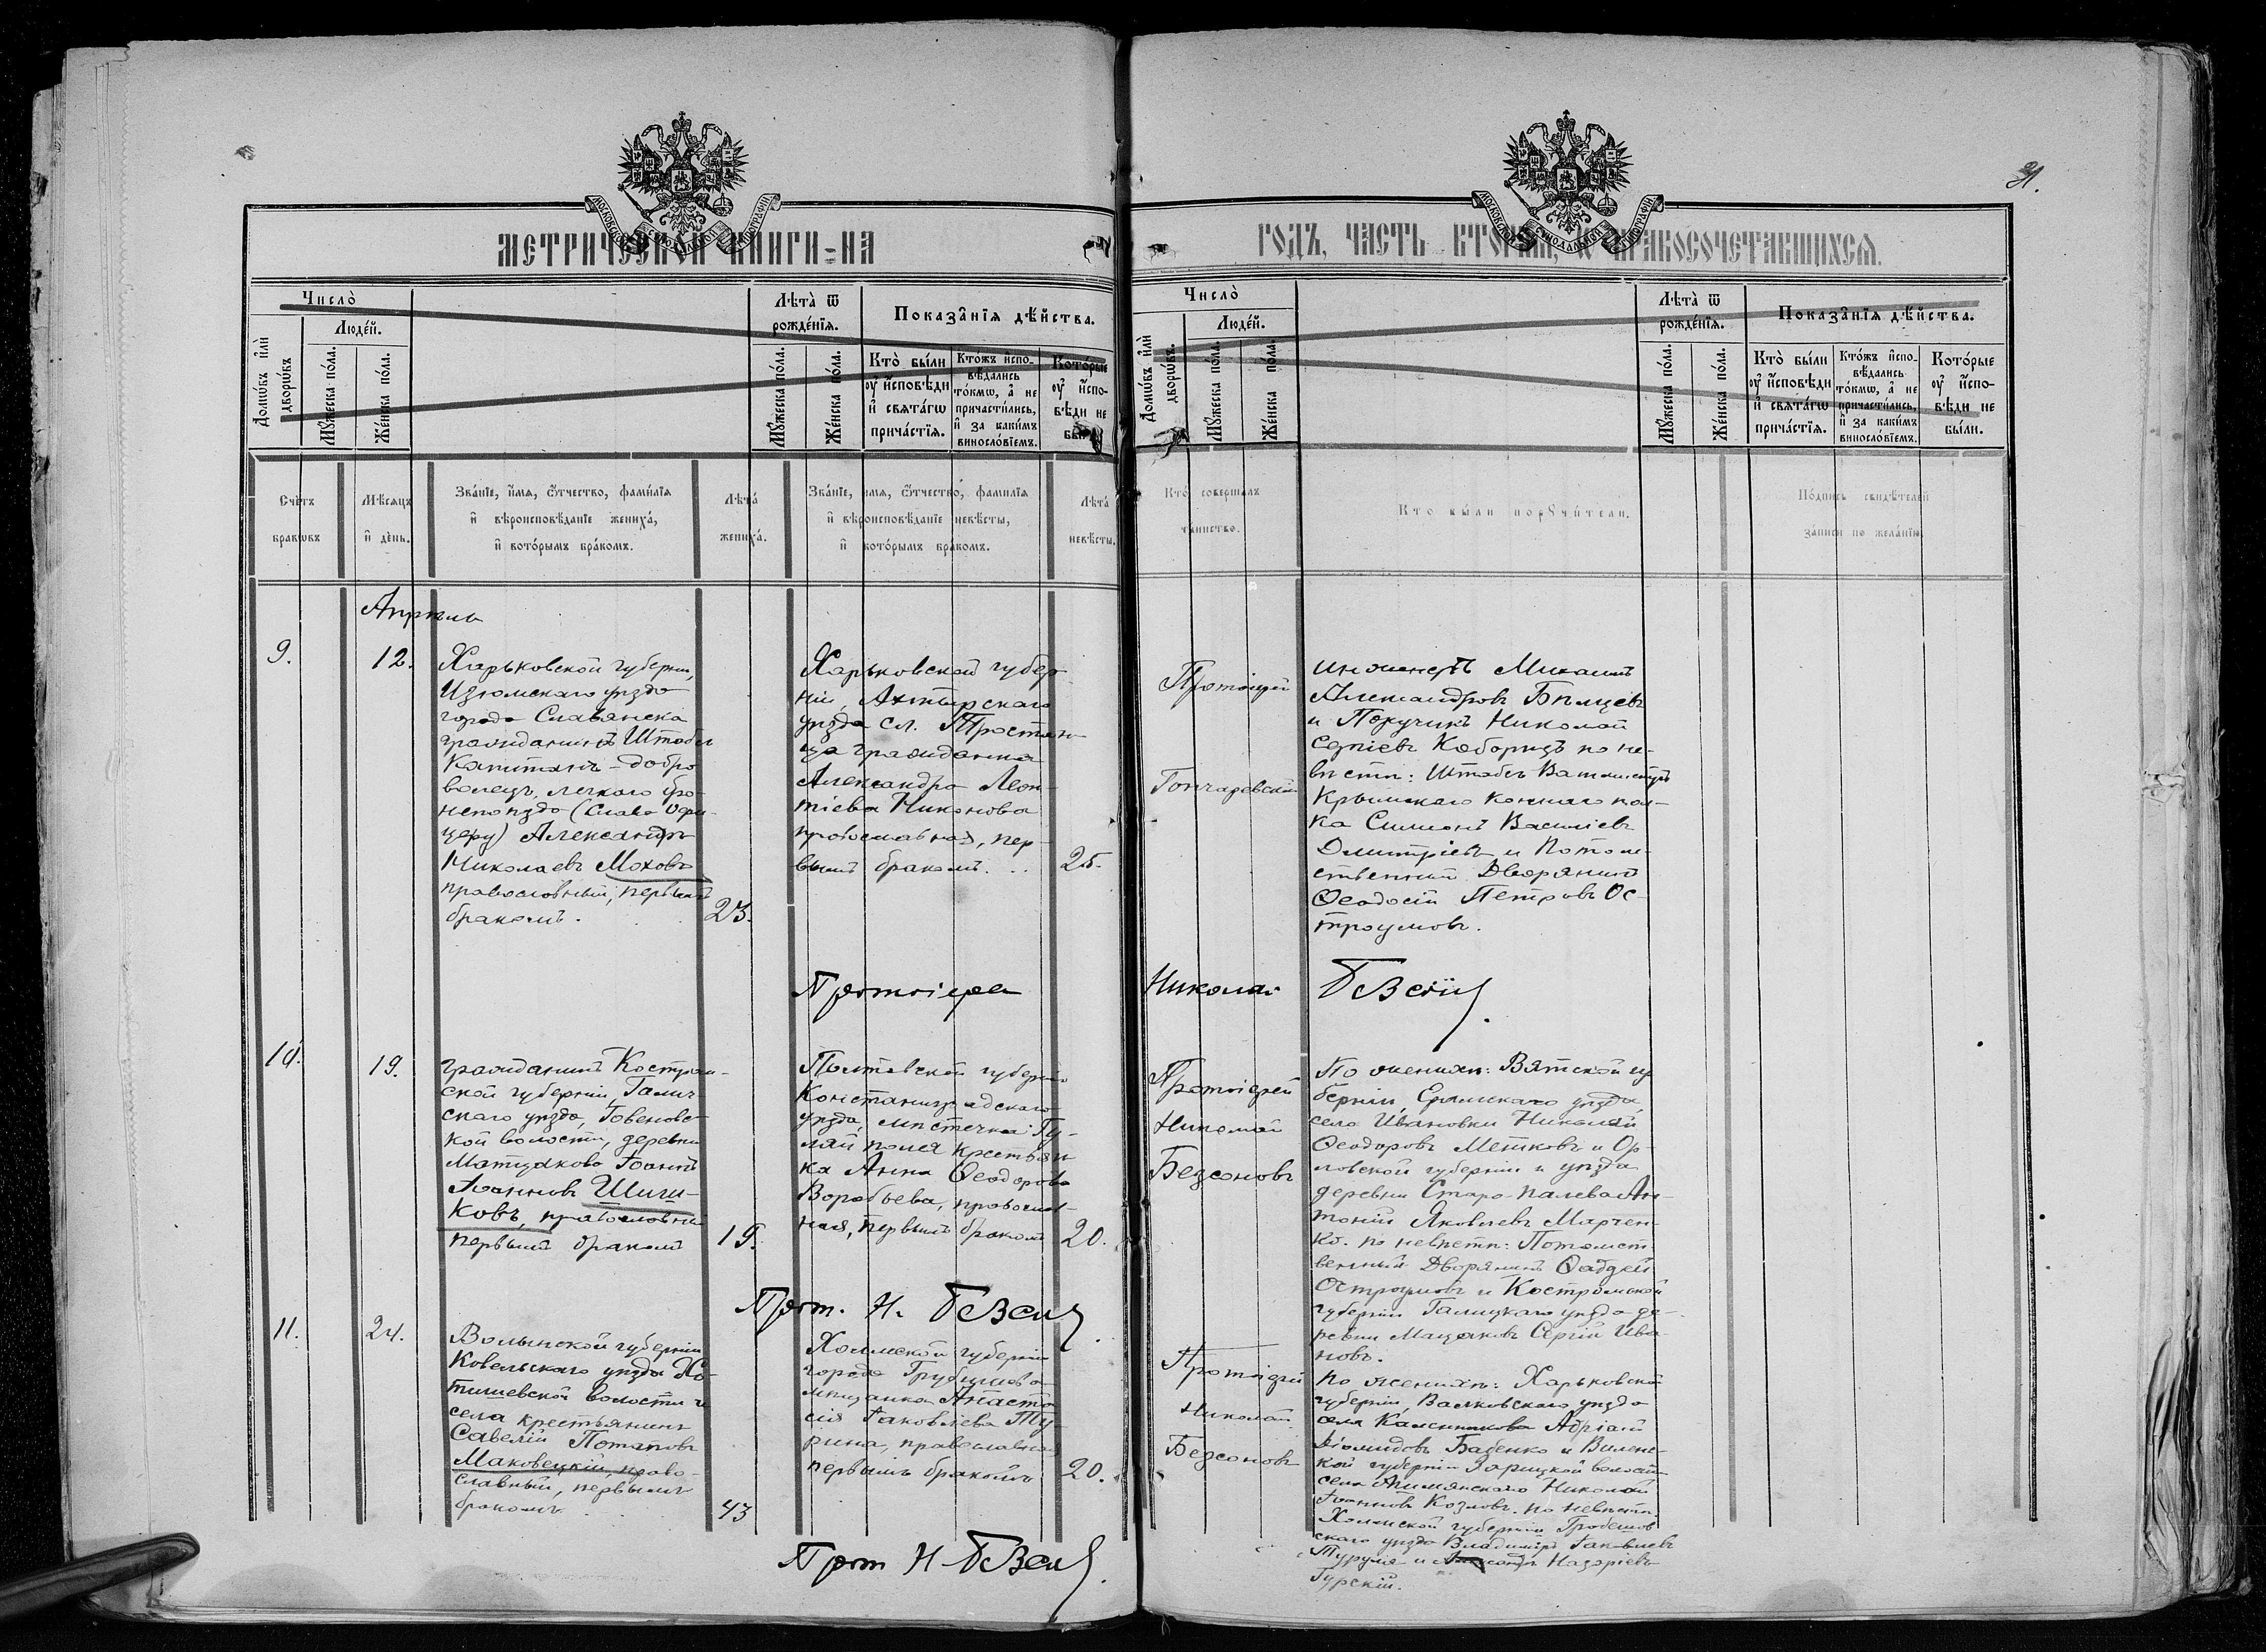 31.
МОСКОВСКОЙ СѴНОДАЛЬНОЙ ТИПОГРАФІИ
МОСКОВСКОЙ СѴНОДАЛЬНОЙ ТИПОГРАФІИ
МЕТРИЧЕСКОЙ КНИГИ НА
ГОДЪ, ЧАСТЬ ВТОРАЯ, О БРАКОСОЧЕТАВШИХСЯ.
Число̀
Людéй.
Домѡ́въ и҆лѝ дворѡ́въ
Мꙋ́жеска по́ла.
Же́нска по́ла.
Лѣта̀ ѿ рожде́нїѧ.
Мꙋ́жеска по́ла.
Же́нска по́ла.
Показа̑нїѧ дѣ́йства.
Кто̀ бы́ли ᲂу҆ и҆́сповѣди и҆ свѧта́гѡ прича́стїѧ.
Кто́жъ и҆спо-
вѣ́дались
то́кмѡ, а҆ не
причасти́лись,
и҆ за каки́мъ
виносло́вїемъ.
Кото́рые
ᲂу҆ и҆спо-
вѣди не
бы́ли.
Число̀
Людéй.
Домѡ́въ и҆лѝ дворѡ́въ.
Мꙋ́жеска по́ла.
Же́нска по́ла.
Лѣта̀ ѿ рожде́нїѧ.
Мꙋ́жеска по́ла.
Же́нска по́ла.
Показа̑нїѧ дѣ́йства.
Кто̀ бы́ли
ᲂу҆ и҆́сповѣди
и҆ свѧта́гѡ
прича́стїѧ.
Кто́жъ и҆спо-
вѣ́дались
то́кмѡ, а҆ не
причасти́лись,
и҆ за каки́мъ
виносло́вїемъ.
Кото́рые
ᲂу҆ и҆спо-
вѣди не
бы́ли.
Сче́тъ браковъ
Мѣ́сяцъ и день.
Зва́нїе, и҆́мя, ѻ҆́тчество, фами́лїя
и҆ вѣроисповѣ́данїе жениха́,
и҆ кото́рымъ бра́комъ.
Лѣта́ жениха́.
Зва́нїе, и҆́мя, ѻ҆́тчество, фами́лїя
и҆ вѣроисповѣ́данїе невѣ́сты,
и҆ кото́рымъ бра́комъ.
Лѣта́ невѣ́сты.
Кто̀ совершалъ таинство.
Кто были порꙋчи́тели.
По́дпись свидѣ́телей
за́писи по жела́нїю
Апрѣль
9.
12.
Харьковской губерніи,
Изюмскаго уѣзда
города Славянска
гражданинъ Штабсъ
Капитанъ - добро
волецъ, легкаго бро-
непоѣзда (Слава Офи-
церу) Александръ
Николаевъ Моховъ
православный, первымъ
бракомъ.
23.
Харьковской губер-
ніи, Ахтырскаго
уѣзда сл. Тростян-
ца гражданка
Александра Леон-
тіева Никонова
православная, пер-
вымъ бракомъ. . .
25.
Протоіерей
Гончаревскій
инженеръ Михаилъ
Александровъ Бѣляевъ
и Поручикъ Николай
Сергіевъ по не-
вѣстѣ: Штабсъ Ротмистръ
Крымскаго Коннаго пол-
ка Симеонъ Василіевъ
Дмитріевъ и Потом-
ственный Дворянинъ
Ѳеодосій Петровъ Ос-
троумовъ.
Протоіерей
Николай
10.
19.
гражданинъ Костром-
ской губерніи, Галич-
скаго уѣзда,
кой волости, деревни
Іоаннъ
Іоанновъ Шиш-
ковъ, православный
первымъ бракомъ
19.
Полтавской губерніи
Константиноградскаго
уѣзда, мѣстечка Гу-
ляй поля крестьян-
ка Анна Ѳеодорова
Воробьева, православ-
ная, первымъ бракомъ
20.
Протоіерей
Николай
Безсоновъ
По женихѣ: Вятской гу
берніи, уѣзда,
села Ивановки Николай
Ѳеодоровъ Метковъ и Ор-
ловской губерніи и уѣзда
деревни Ан-
тоній Яковлевъ Марчен-
ко. по невѣстѣ: Потомст-
венный Дворянинъ
Остроумовъ и Костромской
губерніи Галицкаго уѣзда де-
ревни Сергій Ива-
новъ.
Прот. Н.
11.
24.
Волынской губерніи
Ковельскаго уѣзда
волости и
села крестьянинъ
Савелій Потаповъ
Маковецкій, право-
славный, первымъ
бракомъ. . .
43
Холмской губерніи
города Грубешова
мѣщанка Анаста
сія Іаковлева Ту-
рина, православная
первымъ бракомъ
20.
Протоіерей
Николай
Безсоновъ
По женихѣ: Харьковской
губерніи, Валковскаго уѣзда
села Адріанъ
Діомидовъ Бабенко и Виленс-
кой губерніи волости
села Николай
Іоанновъ Козловъ. по невѣстѣ:
Холмской губерніи Гробешов
скаго уѣзда Владиміръ Іаковлевъ
и Александръ Назаріевъ
Гурскій.
Прот Н